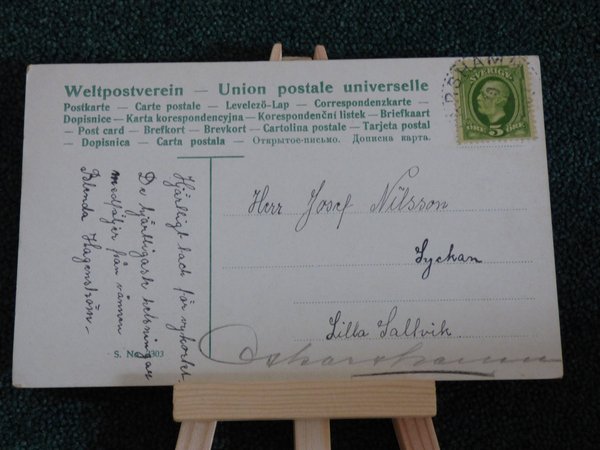 Weltpostverein — Union postale universelle
Postkarte — Carte postale — Levelező-Lap — Correspondenzkarte —
Dopisnice — Karta korespondencyjna — Korespondenční listek — Briefkaart
— Post card — Brefkort — Brevkort — Cartolina postale — Tarjeta postal
— Dopisnica — Carta postala — Открытое-письмо. Дописна карта.
SVERIGE
5
ÖRE ÖRE
Herr Josef Nilsson
Lyckan
Lilla Saltvik
Oskarshamn
Hjärtligt tack för vykortet
De hjärtligaste helsningar
medföljer från vännen
Blenda Hagenström-
S. No. 303